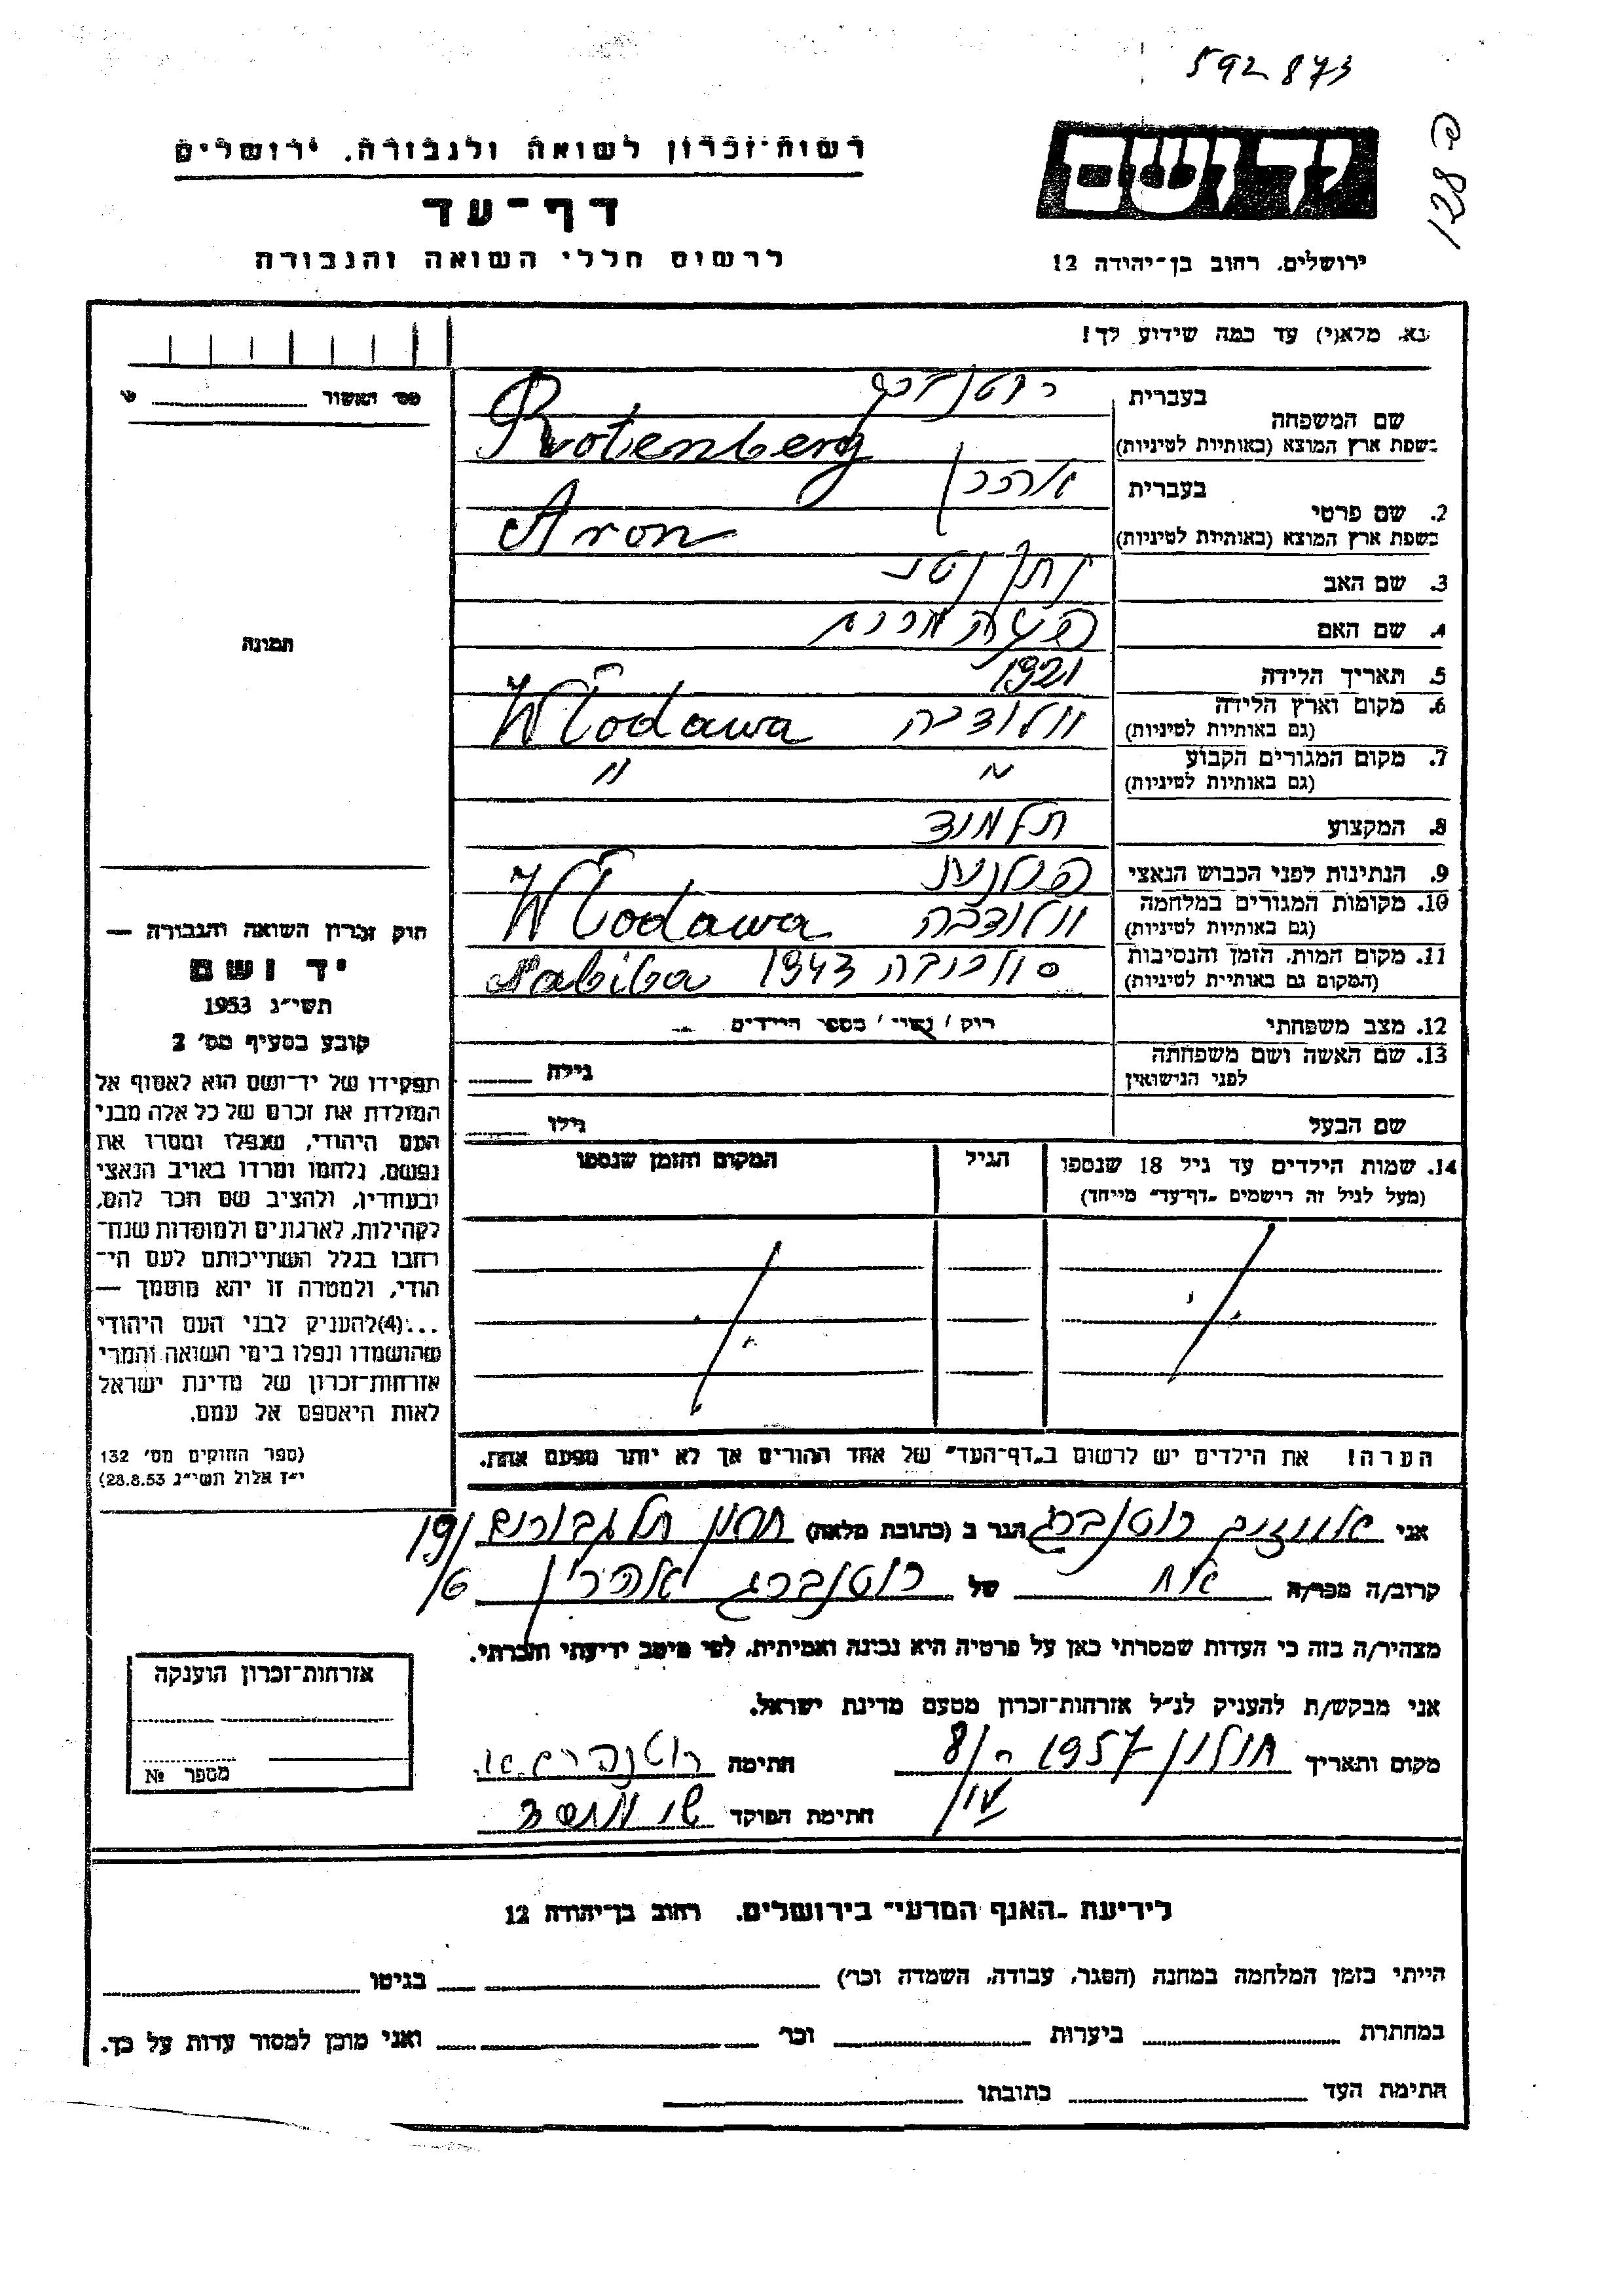 592873
128 ה
יד ושם
רשות-זכרון לשואה ולגבורה, ירושלים
דף-עד
לרשום חללי השואה והגבורה
ירושלים, רחוב בן-יהודה 12
נא מלא(י) עד כמה שידוע לך!
מס' האשור
שם המשפחה
בעברית
רוטנברג
בשפת ארץ המוצא (באותיות לטיניות)
Rotenberg
2. שם פרטי
בעברית
אהרן
בשפת ארץ המוצא (באותיות לטיניות)
Aron
3. שם האב
נתן נטע
4. שם האם
5. תאריך הלידה 1921
6. מקום וארץ הלידה
(גם באותיות לטיניות)
וולודבה Włodawa
7. מקום המגורים הקבוע
(גם באותיות לטיניות)
" "
8. המקצוע תלמיד
9. הנתינות לפני הכבוש הנאצי פולנית
10. מקומות המגורים במלחמה
(גם באותיות לטיניות)
וולודבה Włodawa
11. מקום המות, הזמן והנסיבות
(המקום גם באותיות לטיניות)
סוביבור 1943
12. מצב משפחתי רוק / נשוי / מספר הילדים
13. שם האשה ושם משפחתה
לפני הנישואין
גילה
שם הבעל גילו
14. שמות הילדים עד גיל 18 שנספו
(מעל לגיל זה רישמים "דף-עד" מייחד)
הגיל
המקום והזמן שנספו
הערה! את הילדים יש לרשום ב"דף-העד" של אחד ההורים אך לא יותר מפעם אחת.
תמונה
חוק זכרון השואה והגבורה —
יד ושם
תשי"ג 1953
קובע בסעיף מס' 2
תפקידו של יד-ושם הוא לאסוף אל
המולדת את זכרם של כל אלה מבני
העם היהודי, שנפלו ומסרו את
נפשם, נלחמו ומרדו באויב הנאצי
ובעוזריו, ולהציב שם וזכר להם,
לקהילות, לארגונים ולמוסדות שנח-
רבו בגלל השתייכותם לעם הי-
הודי, ולמטרה זו יהא מוסמך —
...(4)להעניק לבני העם היהודי
שהושמדו ונפלו בימי השואה והמרי
אזרחות-זכרון של מדינת ישראל
לאות היאספם אל עמם.
(ספר החוקים מס' 132
י"ז אלול תשי"ג 28.8.53)
אני רוטנברג הגר ב (כתובת מלאה) חולון תל גבורים 19/
קרוב/ה מכר/ה אח של רוטנברג אהרון 6/
מצהיר/ה בזה כי העדות שמסרתי כאן על פרטיה היא נכונה ואמיתית, לפי מיטב ידיעתי והכרתי.
אני מבקש/ת להעניק לנ"ל אזרחות-זכרון מטעם מדינת ישראל.
מקום ותאריך חולון 1957 חתימה
חתימת הפוקד
אזרחות-זכרון הוענקה
מספר №
לידיעת "האנף המדעי" בירושלים, רחוב בן-יהודה 12
הייתי בזמן המלחמה במחנה (הסגר, עבודה, השמדה וכר') בגיטו
במחתרת ביערות וכר' ואני מוכן למסור עדות על כך.
חתימת העד כתובתו